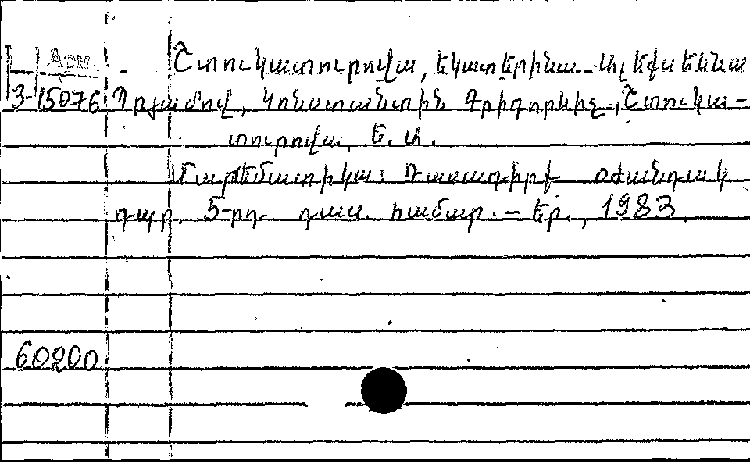 Арм Շտուկատուրովա, Եկատերինա Ալեքսեևնա
3-15076 Պրյամով, Կոնստանտին Գրիգորևիչ, Շտուկա-
տուրովա, Ե. Ա.
Մաթեմատիկա: Դասագիրք օժանդակ
դպր. 5-րդ դաս. համար. – Եր., 1983.
60200